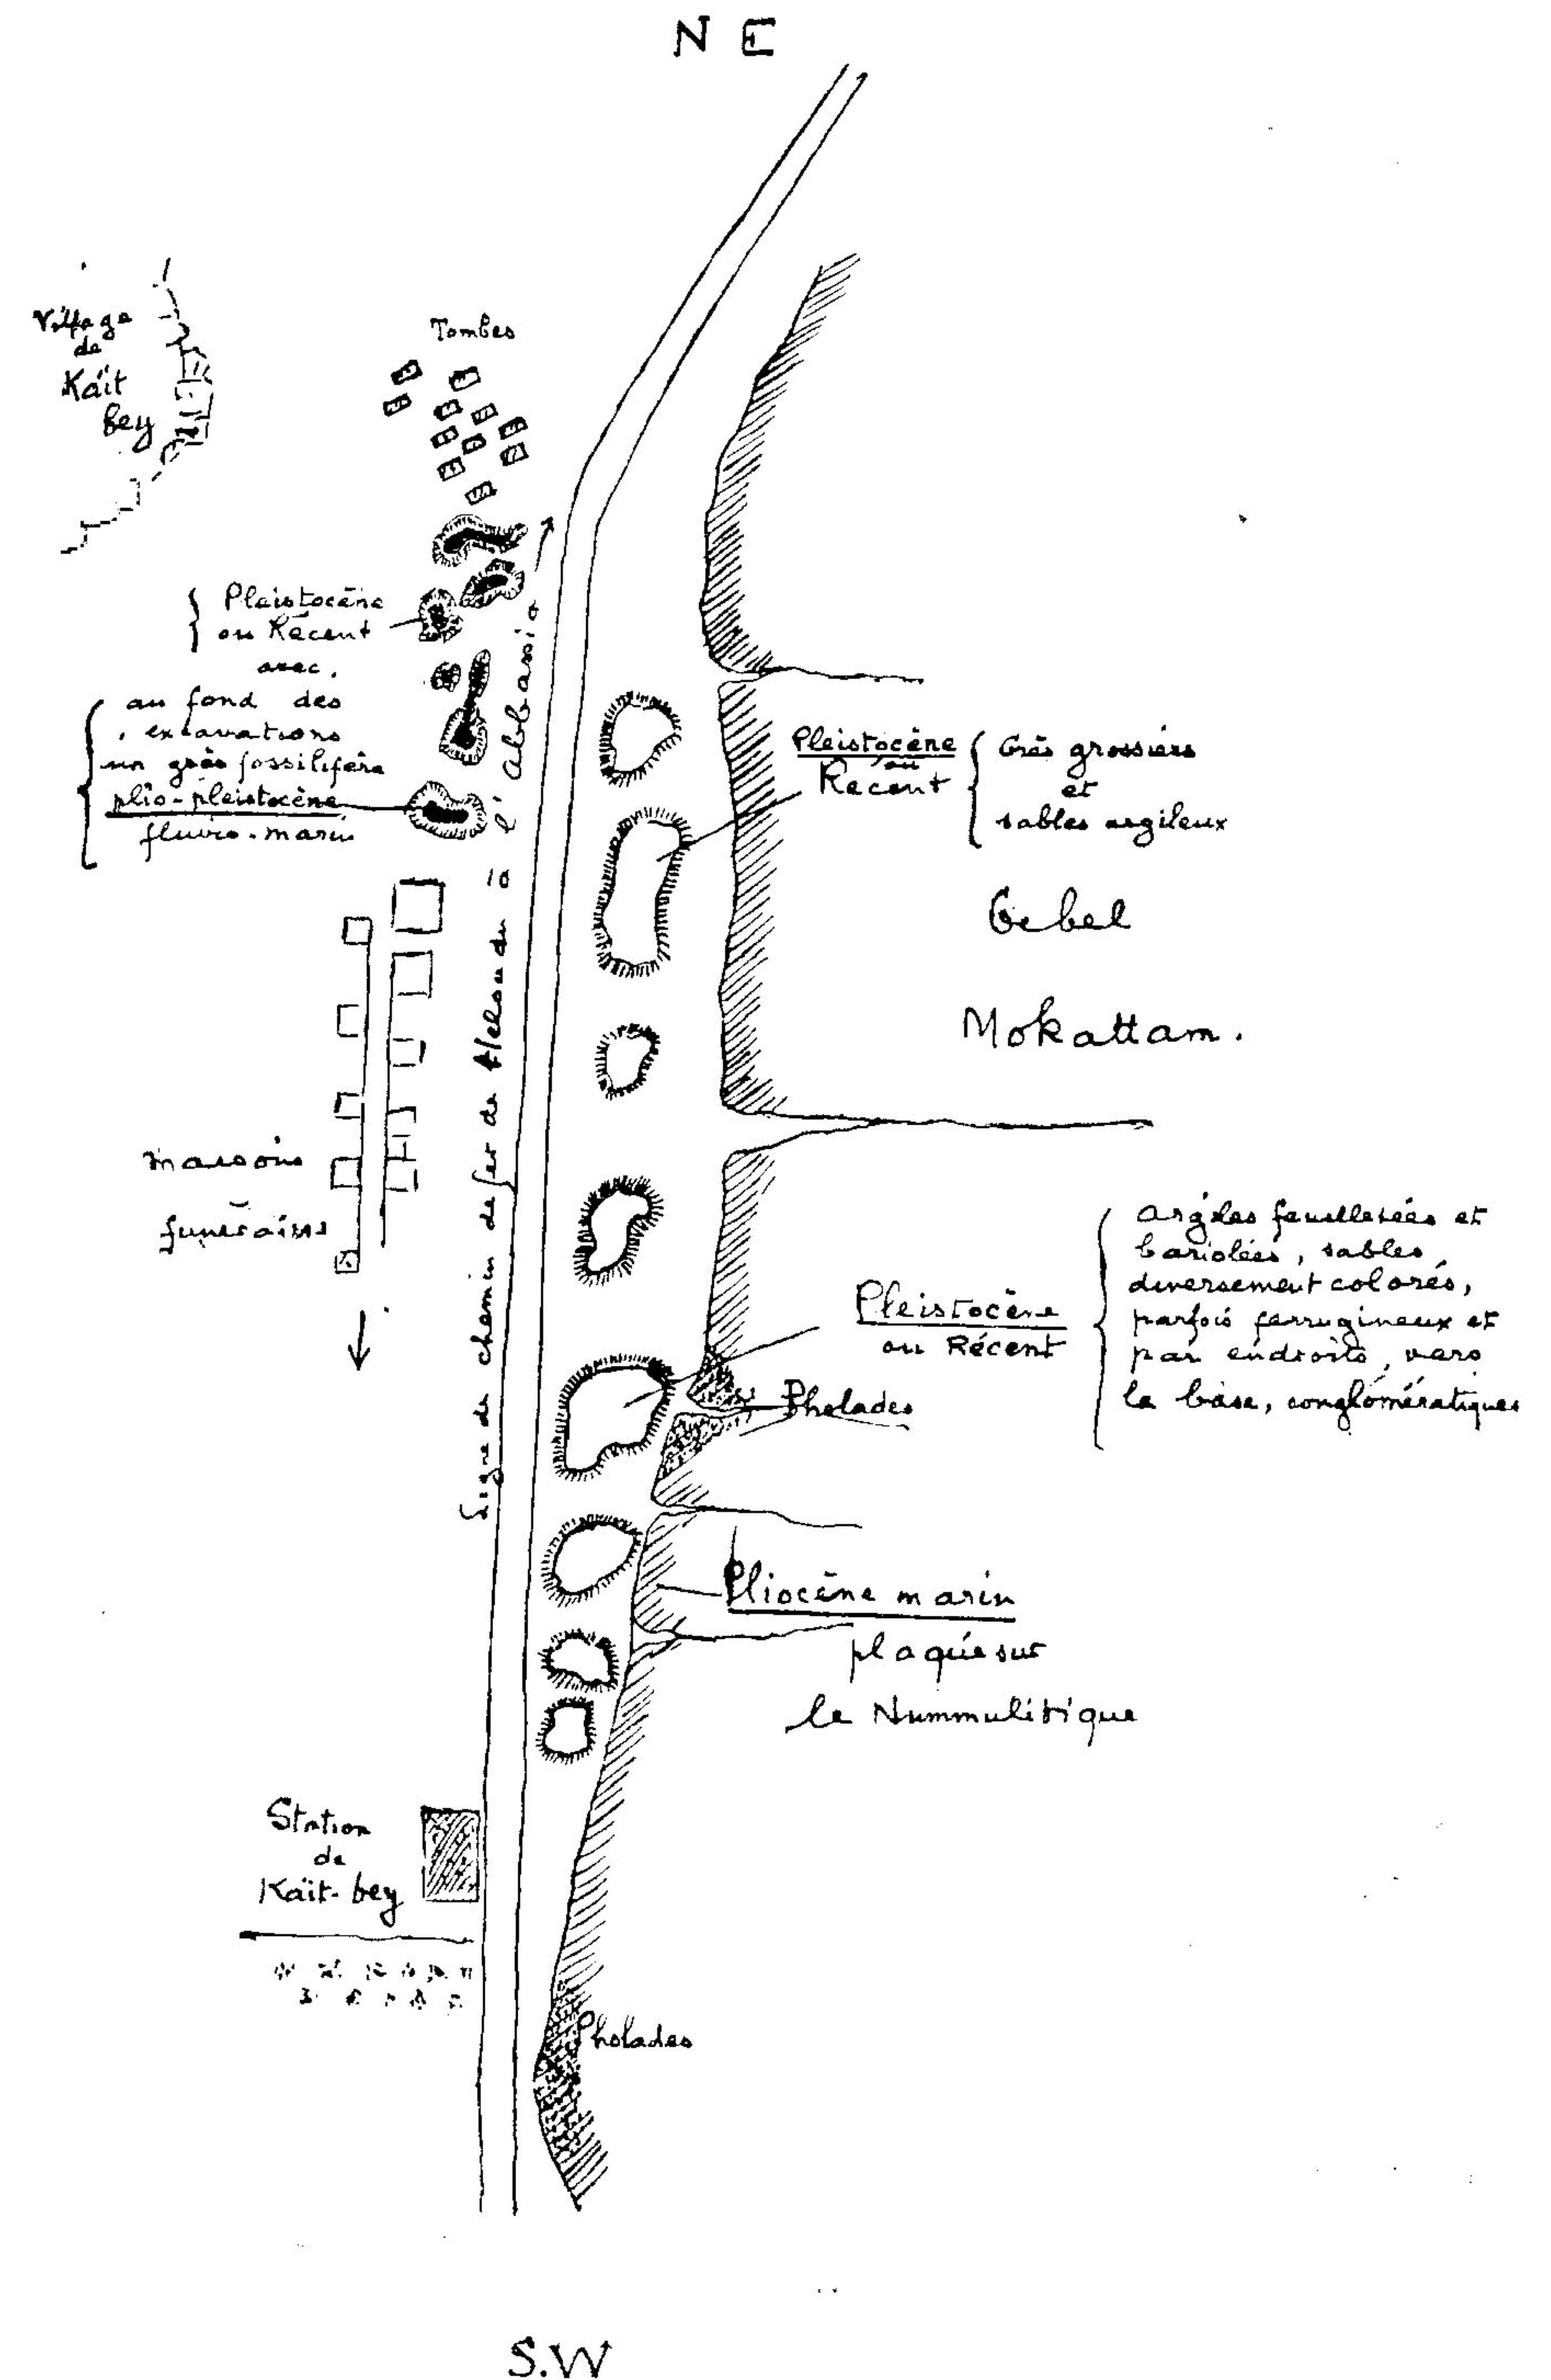 N E
Village
de
Kaït
bey
Tombes
Pleistocène
ou Récent
avec.
au fond des
excavations
un grès fossilifère
plio-pleistocène
fluvio-marin
Ligne de chemin de fer de Helouan à l'Abbassia
Pleistocène
ou
Récent
Grès grossiers
et
sables argileux
Gebel
Mokattam.
maisons
funéraires
Pleistocène
ou Récent
argiles feuilletées et
bariolées, sables
diversement colorés,
parfois ferrugineux et
par endroits, vers
la base, conglomératiques
Pholades
Pliocène marin
plaqué sur
le Nummulitique
Station
de
Kaït-bey
Pholades
S.W